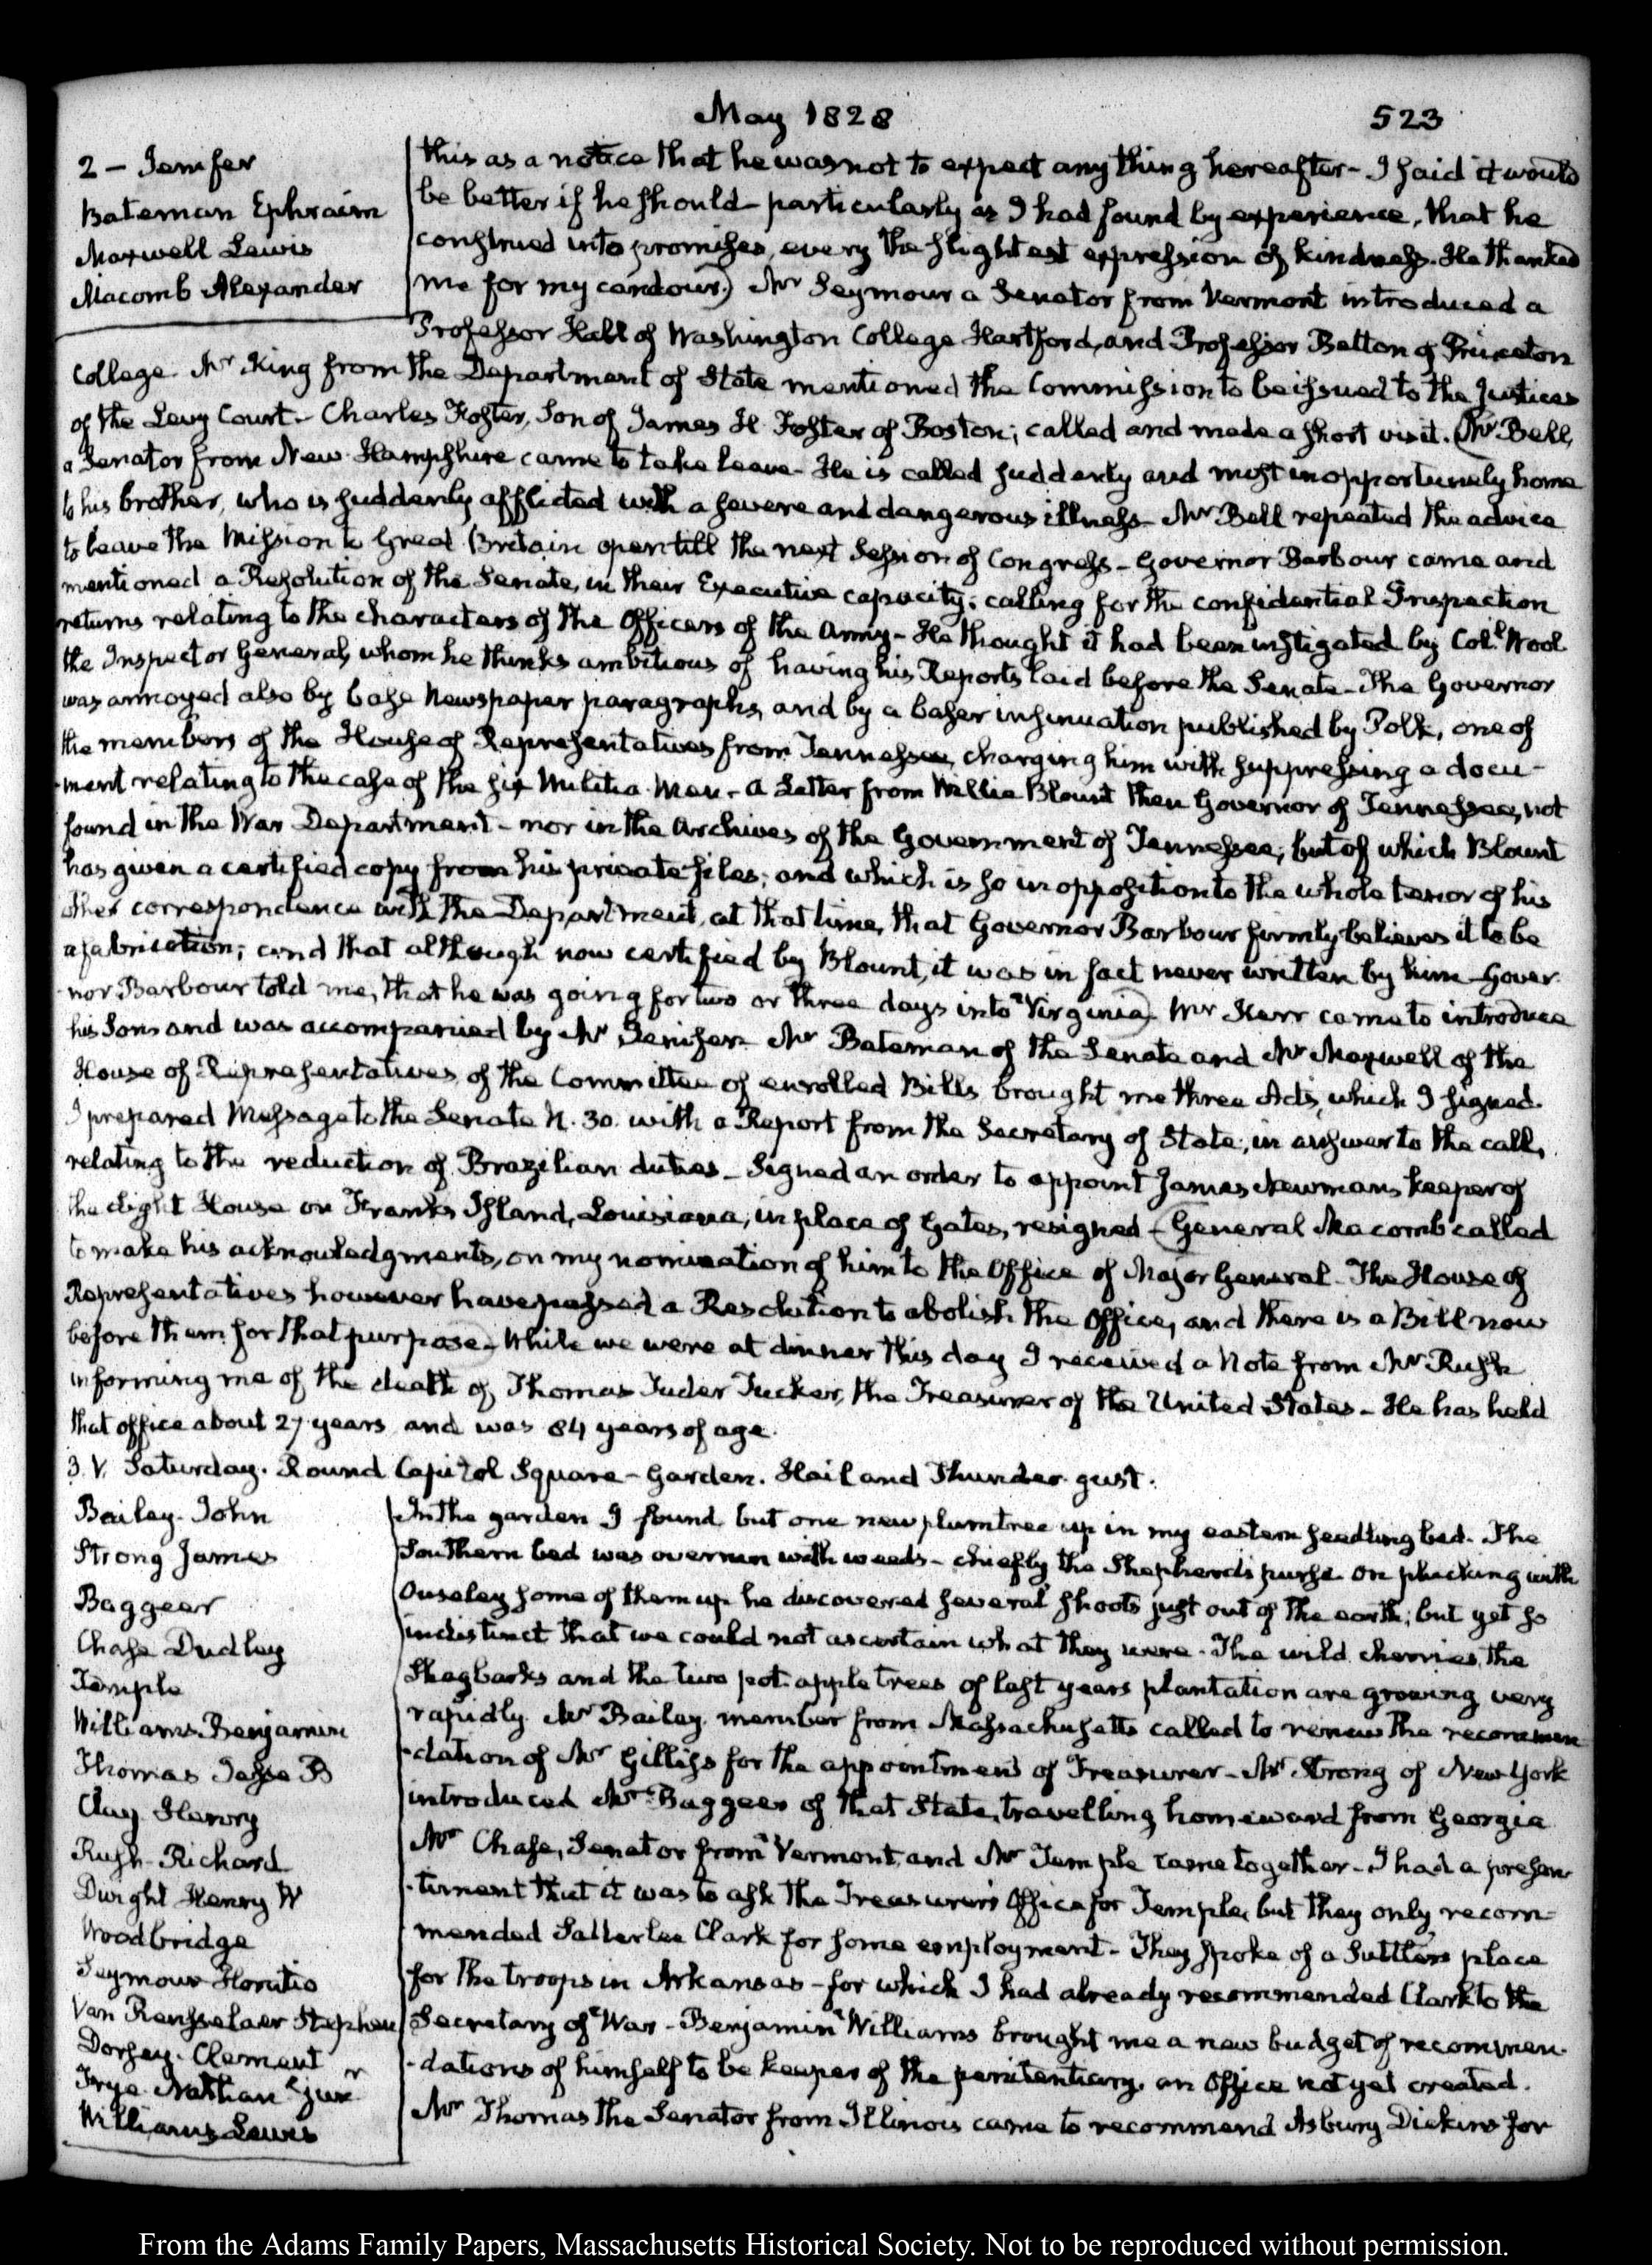 May 1828
523
2 - Jenifer
Bateman Ephraim
Maxwell Lewis
Macomb Alexander
this as a notice that he was not to expect any thing hereafter - I said it would
be better if he should - particularly as I had found by experience, that he
construed into promises, every the slightest expression of kindness. He thanked
me for my candour.) Mr Seymour a Senator from Vermont introduced a
Professor Hall of Washington College Hartford, and Professor Betton of Princeton
College. Mr King from the Department of State mentioned the Commission to be issued to the Justices
of the Levy Court - Charles Foster, Son of James H Foster of Boston; called and made a short visit. (Mr Bell,
a Senator from New-Hampshire came to take leave - He is called suddenly and most inopportunely home
to his brother, who is suddenly afflicted with a severe and dangerous illness - Mr Bell repeated the advice
to leave the Mission to Great Britain open till the next Session of Congress - Governor Barbour came and
mentioned a Resolution of the Senate, in their Executive capacity; calling for the confidential Inspection
returns relating to the characters of the Officers of the Army - He thought it had been instigated by Col.l Wool
the Inspector General, whom he thinks ambitious of having his Reports laid before the Senate - The Governor
was annoyed also by base Newspaper paragraphs, and by a baser insinuation published by Polk, one of
the members of the House of Representatives from Tennessee, charging him with suppressing a docu-
-ment relating to the case of the six Militia-Men - a Letter from Willie Blount then Governor of Tennessee, not
found in the War Department - nor in the Archives of the Government of Tennessee; but of which Blount
has given a certified copy from his private files; and which is so in opposition to the whole tenor of his
other correspondence with the Department, at that time, that Governor Barbour firmly believes it to be
a fabrication; and that although now certified by Blount, it was in fact never written by him - Gover-
-nor Barbour told me, that he was going for two or three days into Virginia) - Mr Kerr came to introduce
his Sons and was accompanied by Mr Jenifer. Mr Bateman of the Senate and Mr Maxwell of the
House of Representatives, of the Committee of enrolled Bills, brought me three Acts, which I signed.
I prepared Message to the Senate N. 30. with a Report from the Secretary of State; in answer to the call,
relating to the reduction of Brazilian duties - Signed an order to appoint James Newman keeper of
the Light House on Frank's Island, Louisiana, in place of Gates, resigned - (General Macomb called
to make his acknowledgments, on my nomination of him to the Office of Major General - The House of
Representatives however have passed a Resolution to abolish the Office, and there is a Bill now
before them for that purpose) - While we were at dinner this day I received a Note from Mr Rush
informing me of the death of Thomas Tudor Tucker, the Treasurer of the United States - He has held
that office about 27 years and was 84 years of age.
3. V. Saturday. Round Capitol Square - Garden. Hail and Thunder gust.
Bailey. John
Strong James
Baggeer
Chase Dudley
Temple
Williams Benjamin
Thomas Jesse B
Clay. Henry
Rush. Richard
Dwight Henry W
Woodbridge
Seymour Horatio
Van Rensselaer Stephen
Dorsey. Clement
Frye. Nathan junr
Williams Lewis
In the garden I found but one new plumtree up in my eastern seedling bed. The
Southern bed was overrun with weeds - chiefly the Shepherds purse. On plucking with
Ouseley some of them up he discovered several shoots just out of the earth; but yet so
indistinct that we could not ascertain what they were. The wild cherries, the
Shagbarks and the two pot apple trees of last years plantation are growing very
rapidly. Mr Bailey, member from Massachusetts called to renew the recommen-
-dation of Mr Gilliss for the appointment of Treasurer - Mr Strong of New York
introduced Mr Baggeer of that State, travelling homeward from Georgia
Mr Chase, Senator from Vermont, and Mr Temple came together - I had a presen-
-timent that it was to ask the Treasurer's Office for Temple, but they only recom-
mended Satterlee Clark for some employment - They spoke of a Suttlers place
for the troops in Arkansas - for which I had already recommended Clark to the
Secretary of War - Benjamin Williams brought me a new budget of recommen-
-dations of himself to be keeper of the penitentiary, an Office not yet created.
Mr Thomas the Senator from Illinois came to recommend Asbury Dickins for
From the Adams Family Papers, Massachusetts Historical Society. Not to be reproduced without permission.